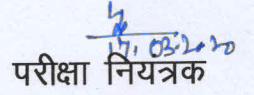 17.03.2020
परीक्षा नियत्रक